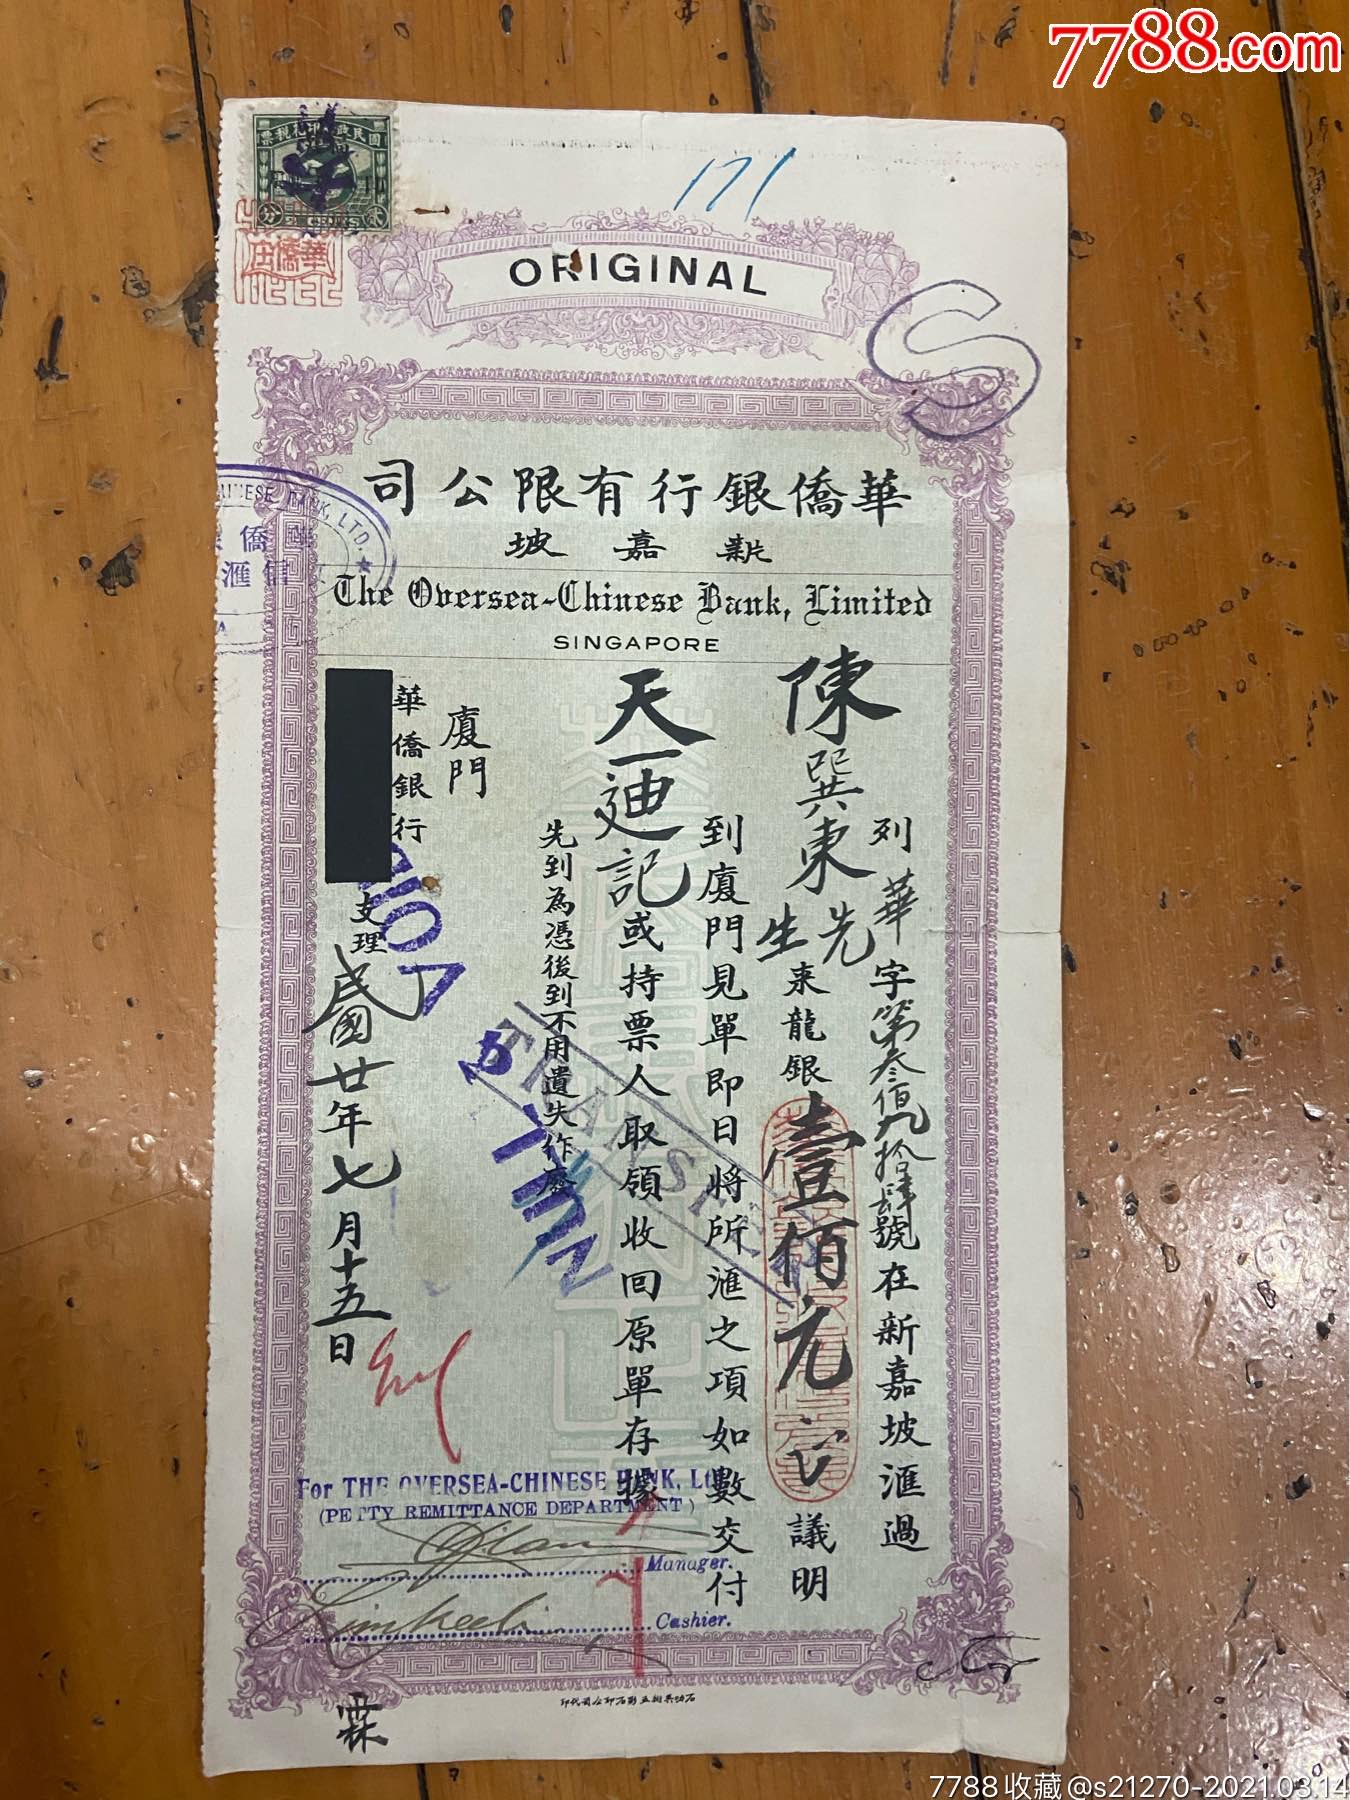 7788.com
國民政府印花稅票
分 2 CENTS 貳
華僑庄
171
ORIGINAL
S
華僑銀行有限公司
新嘉坡
The Oversea-Chinese Bank, Limited
SINGAPORE
列華字第叁佰九拾肆號在新嘉坡滙過
陳巽東先生來龍銀壹佰元 議明
到廈門見單即日將所滙之項如數交付
天一迪記或持票人取領收回原單存據
先到為憑後到不用遺失作廢
廈門
華僑銀行
支理
民國廿年七月十五日
TRANSFER
CHINESE BANK, LTD.
僑
信滙
For THE OVERSEA-CHINESE BANK, LTD
(PETTY REMITTANCE DEPARTMENT)
Manager.
Cashier.
霖
7788收藏@s21270-2021.03.14